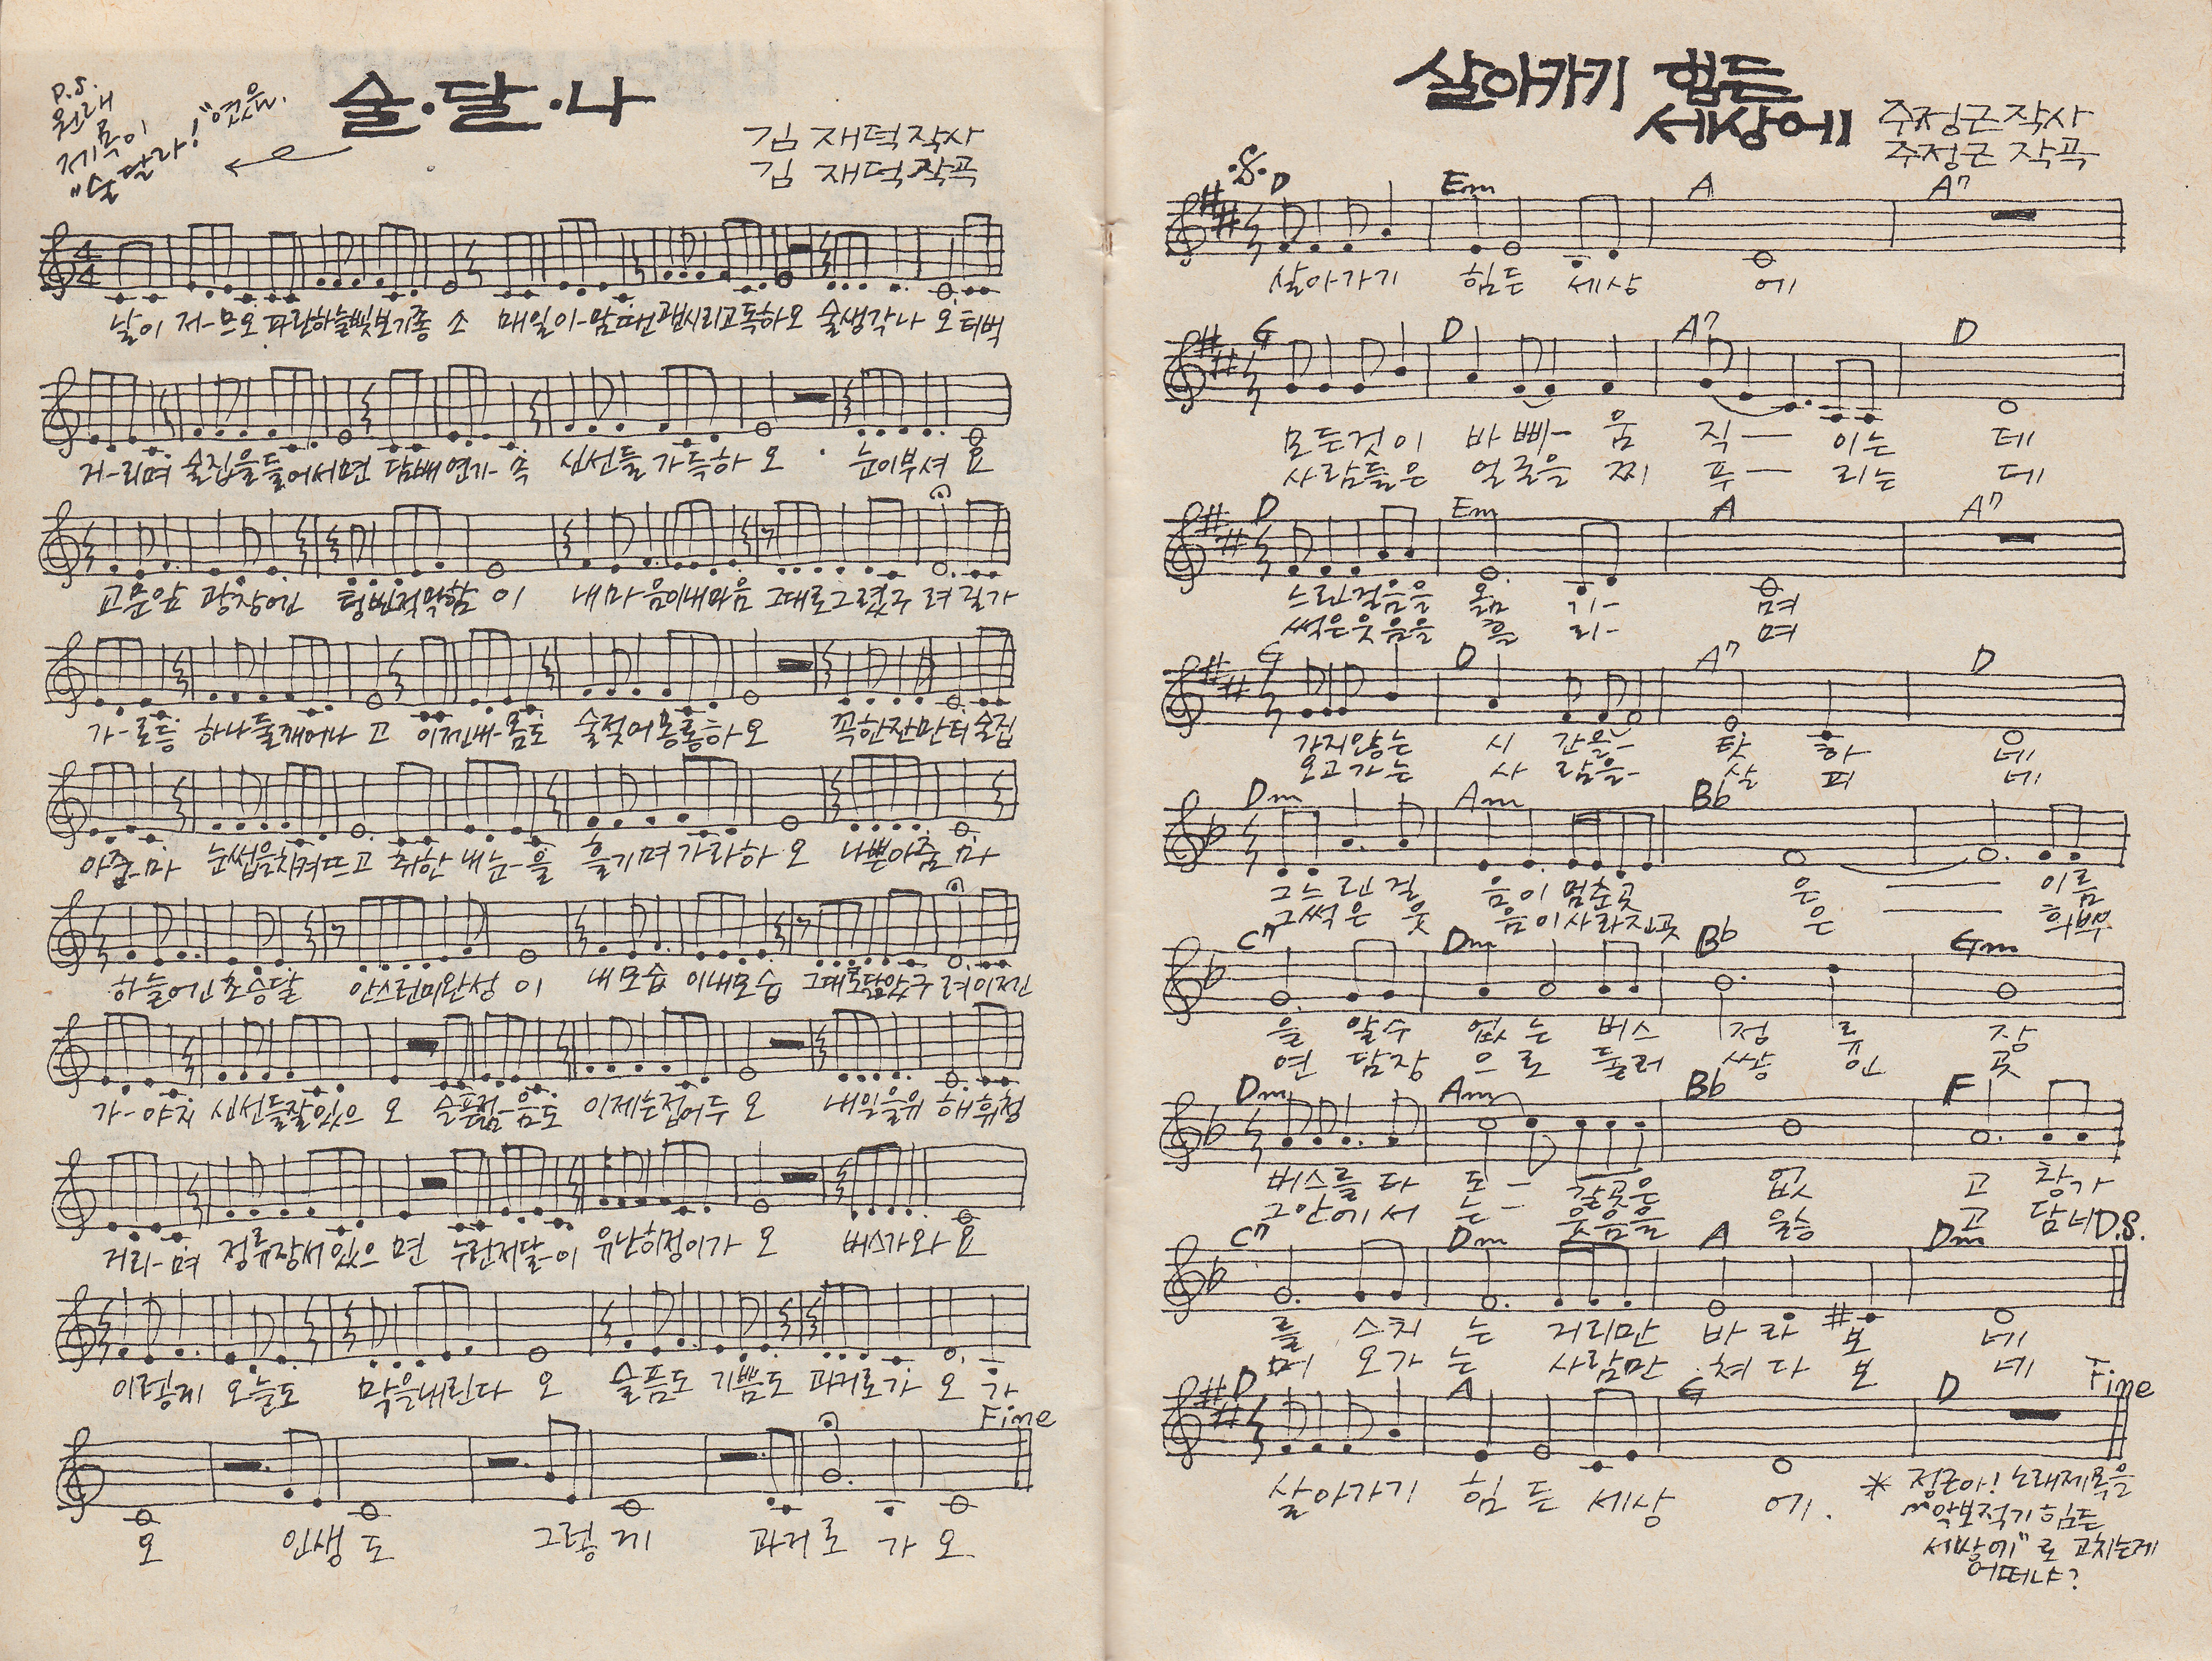 P.S.
원래
제목이
"술달라!"였음.
술·달·나
김재덕 작사
김재덕 작곡
날이 저-므오 파란하늘빛보기좋 소 매일이-맘때면괜시리고독하오 술생각나 오 터벅
거-리며 술집을들어서면 담배연기-속 신선들 가득하 오 눈이부셔 요
교문앞 광장에인 텅빈적막함 이 내마음이내마음 그대로그렇구 려 길가
가-로등 하나둘깨어나 고 이제내-몸도 술젖어몽롱하오 꼭한잔만 더 술집
아줌-마 눈썹을치켜뜨고 취한내눈-을 흘기며 가라하 오 나쁜아줌 마
하늘에인 초승달 안스런미완성 이 내모습 이내모습 그대로닮았구 려 이제긴
가-야지 신선들잘있으 오 슬픈젊-음도 이제는접어두 오 내일을위 해 휘청
거리-며 정류장서있으 면 누런저달-이 유난히정이가 오 버스가와 요
이렇게 오늘도 막을내린다 오 슬픔도 기쁨도 과거로가 오 가
Fine
오 인생도 그렇게 과거로 가 오
살아가기 힘든
세상에
주정근 작사
주정근 작곡
D Em A A7
살아가기 힘든 세상 에
G D A7 D
모든것이 바삐- 움 직— 이는 데
사람들은 얼굴을 찌 푸— 리는 데
D Em A A7
느린걸음을 옮 기- 며
썩은웃음을 흘 리- 며
G D A7 D
가지않는 시 간을- 탓 하 네
오고가는 사 람을- 살 피 네
Dm Am Bb
그느린 걸 음이 멈춘곳 은 — 이름
그썩은 웃 음이사라진곳 은 — 희뿌
C7 Dm Bb Gm
을 알수 없는 버스 정 류 장
연 담장 으로 둘러 쌓 인 곳
Dm Am Bb F
버스를 타 도- 갈곳은 없 고 창가
그안에서 는- 웃음을 울 고 담너 D.S.
C7 Dm A Dm
를 스치 는 거리만 바라 보 네
머 오가 는 사람만 쳐다 보 네
Fine
D A G D
살아가기 힘든 세상 에.
* 정근아! 노래제목을
"악보적기 힘든
세상에"로 고치는게
어떠냐?